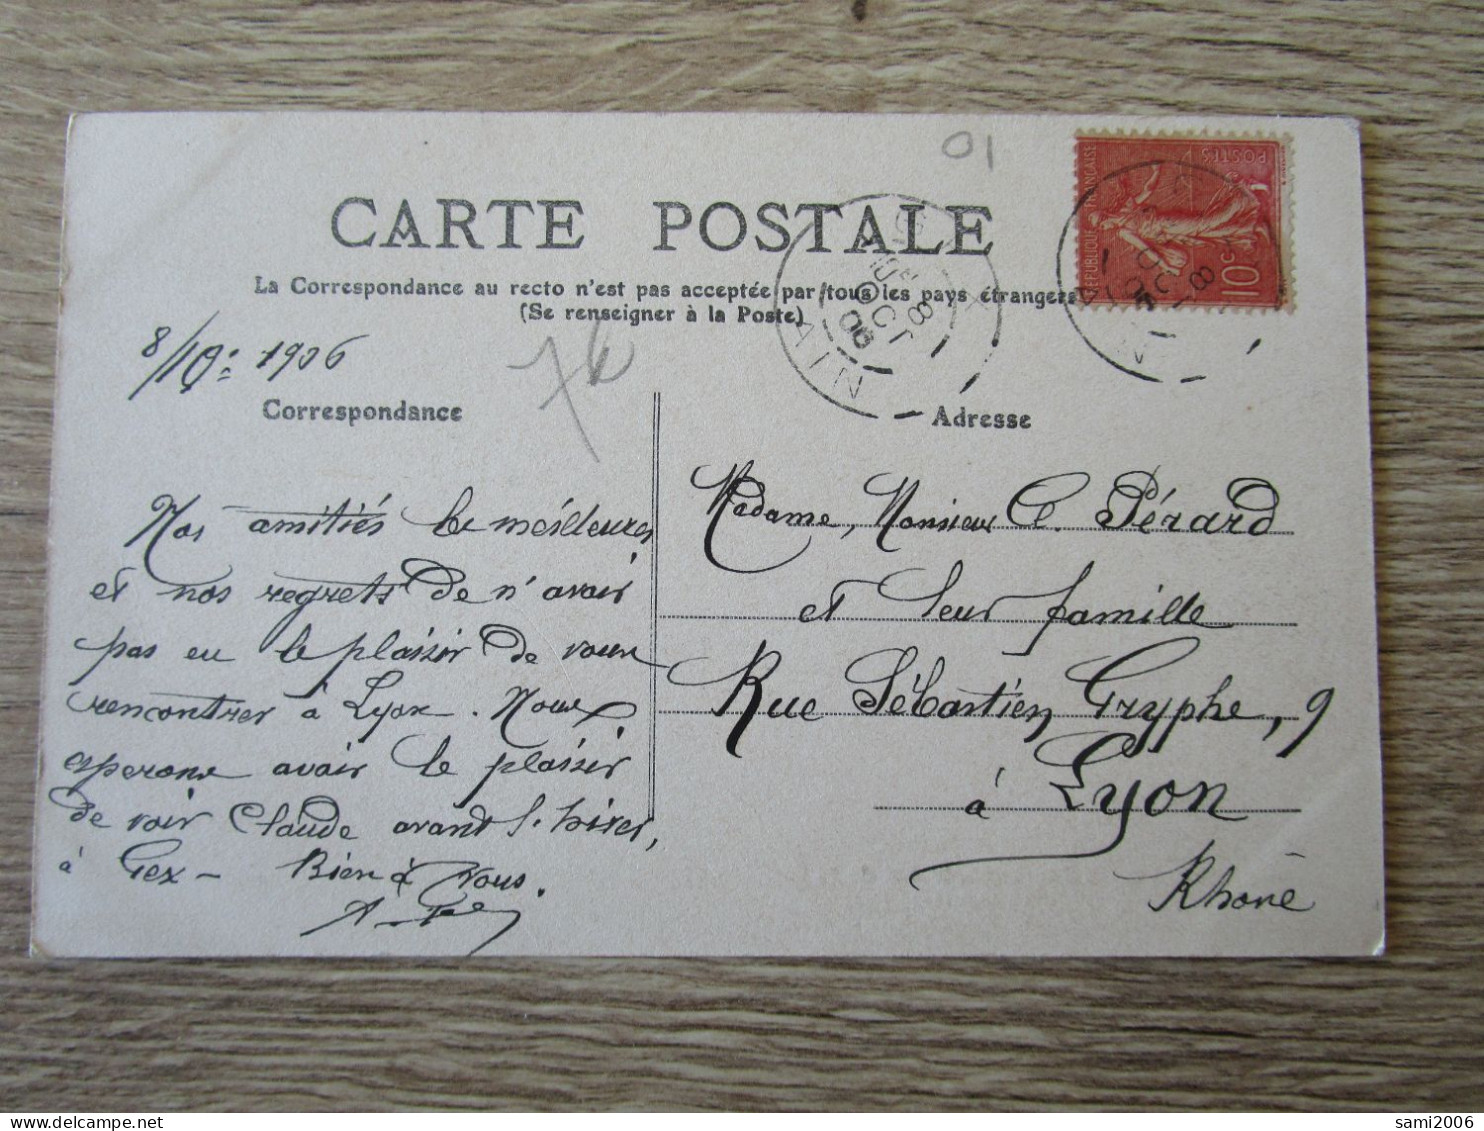 01
CARTE POSTALE
RÉPUBLIQUE FRANÇAISE
POSTES
10c
La Correspondance au recto n'est pas acceptée par tous les pays étrangers
(Se renseigner à la Poste)
8 OCT 06
AIN
8/10: 1906
Correspondance
Nos amitiés les meilleures
et nos regrets de n'avoir
pas eu le plaisir de vous
rencontrer à Lyon. Nous
esperons avoir le plaisir
de voir Claude avant l'hiver,
à Gex – Bien à vous.
Adresse
Madame, Monsieur C. Pérard
et leur famille
Rue Sébastien Gryphe, 9
à Lyon
Rhône
sami2006